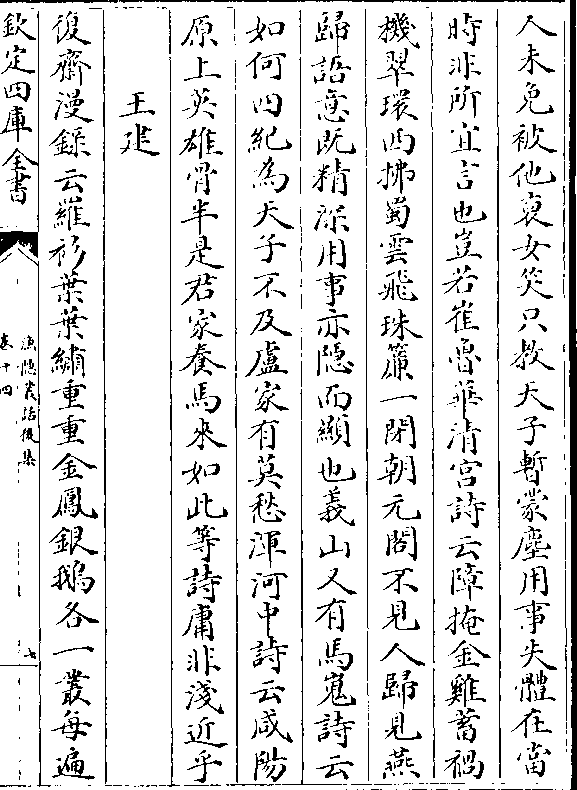 人未免被他褒女笑只教天子暫蒙塵用事失體在當
時非所宜言也豈若崔魯華清宮詩云障掩金雞蓄禍
機翠環西拂蜀雲飛珠簾一閉朝元閣不見人歸見燕
歸語意既精深用事亦隱而顯也義山又有馬嵬詩云
如何四紀為天子不及盧家有莫愁渾河中詩云咸陽
原上英雄骨半是君家養馬來如此等詩庸非淺近乎
王建
復齋漫錄云羅衫葉葉繡重重金鳳銀鵝各一叢每遍
欽定四庫全書
漁隱叢話後集
卷十四
七